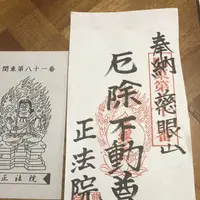 関東第八十一番
正法院
奉納
慈眼山
厄除不動尊
正法院